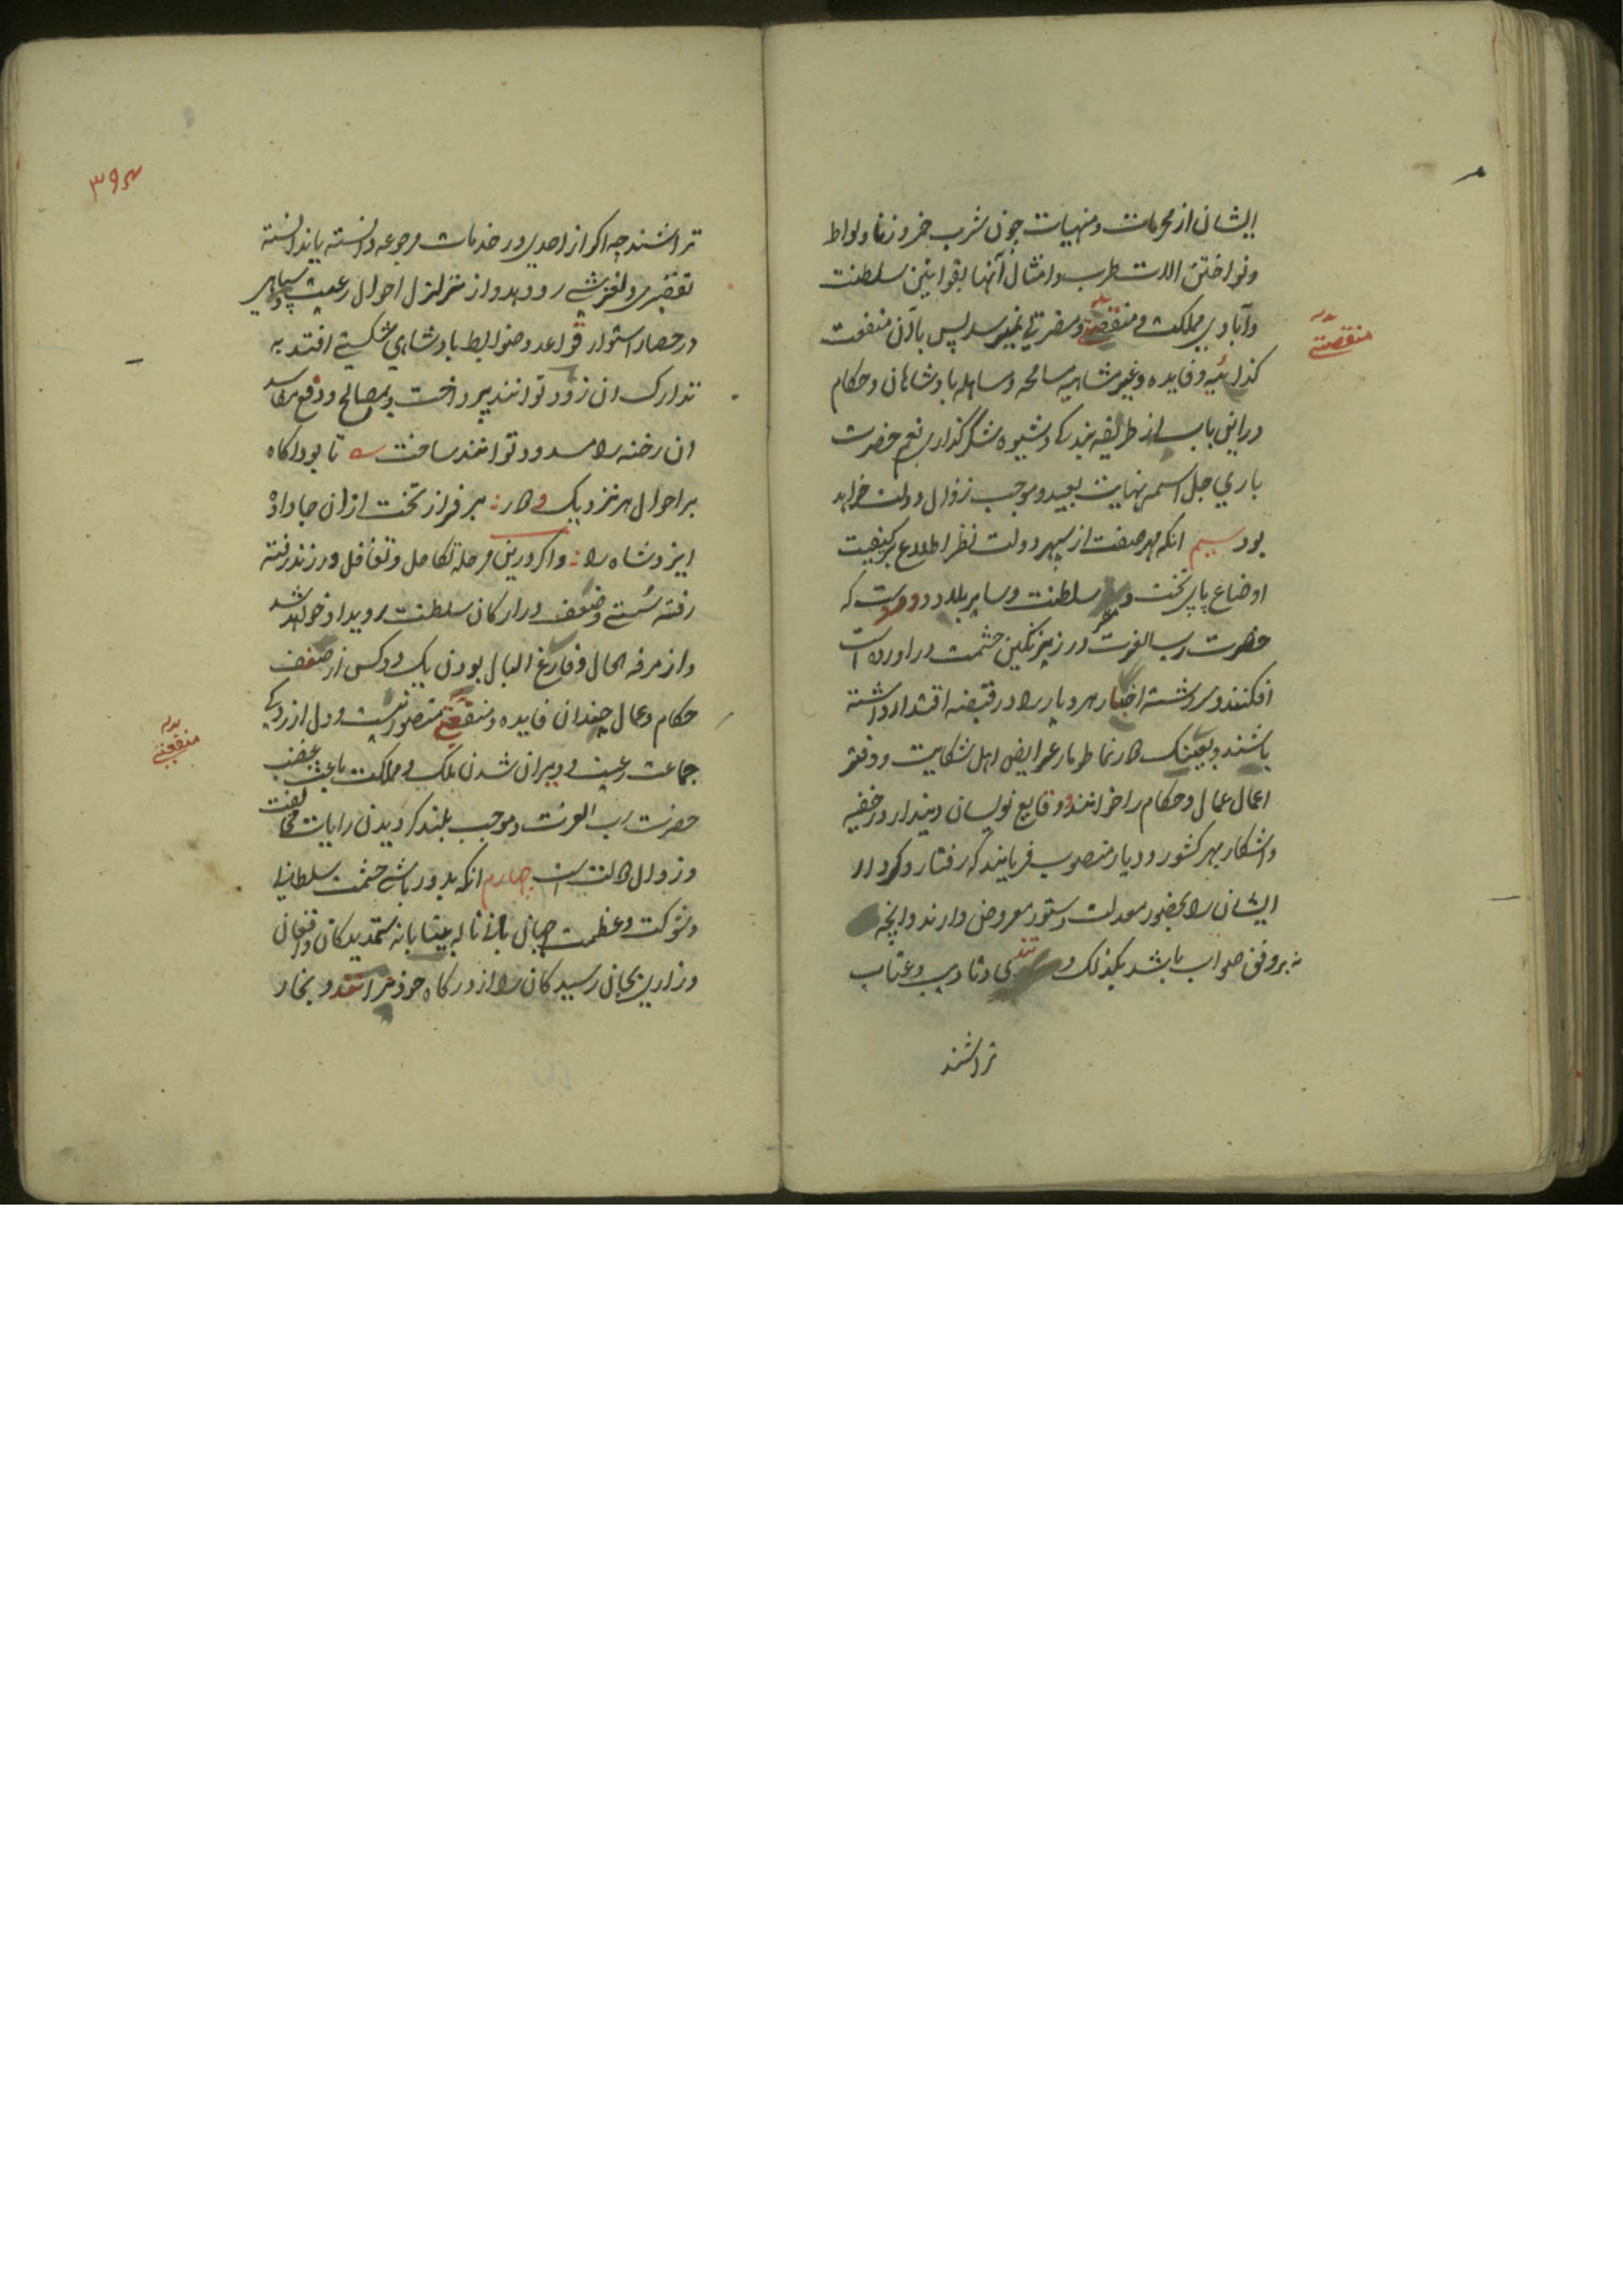 ایشان از محرمات و منهیات چون شرب خمر و زنا و لواط
و نواختن الات طرب و امثال آنها بقوانین سلطنت
و آبادی مملکت منقصتی و مضرتی نمیرسد پس باآن منفعت
منقصتی
و فایده و غیر مسامحه و مساهله بادشاهان و حکام
دراین باب از طریقه بندگی و شیوه شکر گذاری نعم حضرت
باری جل اسمه نهایت بعید و موجب زوال دولت خواهد
بود سیم انکه بهر صفت از سپهر دولت نظر اطلاع بر کیفیت
اوضاع پای تخت و سلطنت و سایر بلاد که
حضرت رب العزت در زیر نگین حشمت دراورده است
افکنند و سررشته اخبار هر دیار را در قبضه اقتدار داشته
باشند و بعینک کارنما طومار عرایض اهل شکایت و دفتر
اعمال عمال و حکام را خوانند و وقایع نویسان دیندار در خفیه
و اشکار بهر کشور و دیار منصوب فرمایند که رفتار و کردار
ایشان را بحضور معدلت دستور معروض دارند و انچه
نه بر وفق صواب باشد بکذلک و تادیب و عتاب
تراشند
۳۹۴
تراشند چه اگر از احدی در خدمات مرجوعه دانسته یا ندانسته
تقصیری و لغزشی رو دهد و از تزلزل احوال رعیت و سپاهی
در حصار استوار قواعد و ضوابط بادشاهی شکستی افتد به
تدارک ان زود توانند پرداخت و بمصالح و دفع مفاسد
ان رخنه را مسدود توانند ساخت تا بود اکاه
بر احوال هر نزدیک و دور بر فراز تخت ازان جا داد
ایزد شاه را و اگر درین مرحله تکاهل و تغافل ورزند رفته
رفته سستی و ضعف در ارکان سلطنت رویداد خواهد شد
و از مرفه الحال و فارغ البال بودن یک دو کس از صنف
حکام و عمال چندان فایده و منفعتی متصور نیست و دل ازردگی
منفعتی
جماعت رعیت و ویران شدن ملک و مملکت باعث غضب
حضرت رب العزت و موجب بلند گردیدن رایات مخالفت
و زوال دولت است چهارم انکه بدور باش حشمت سلطانی
و شوکت و عظمت جهان بانی ناله بیتابانه ستمدیدگان و افغان
و زاری بجان رسیدگان را از درگاه خود نرانند و بخار